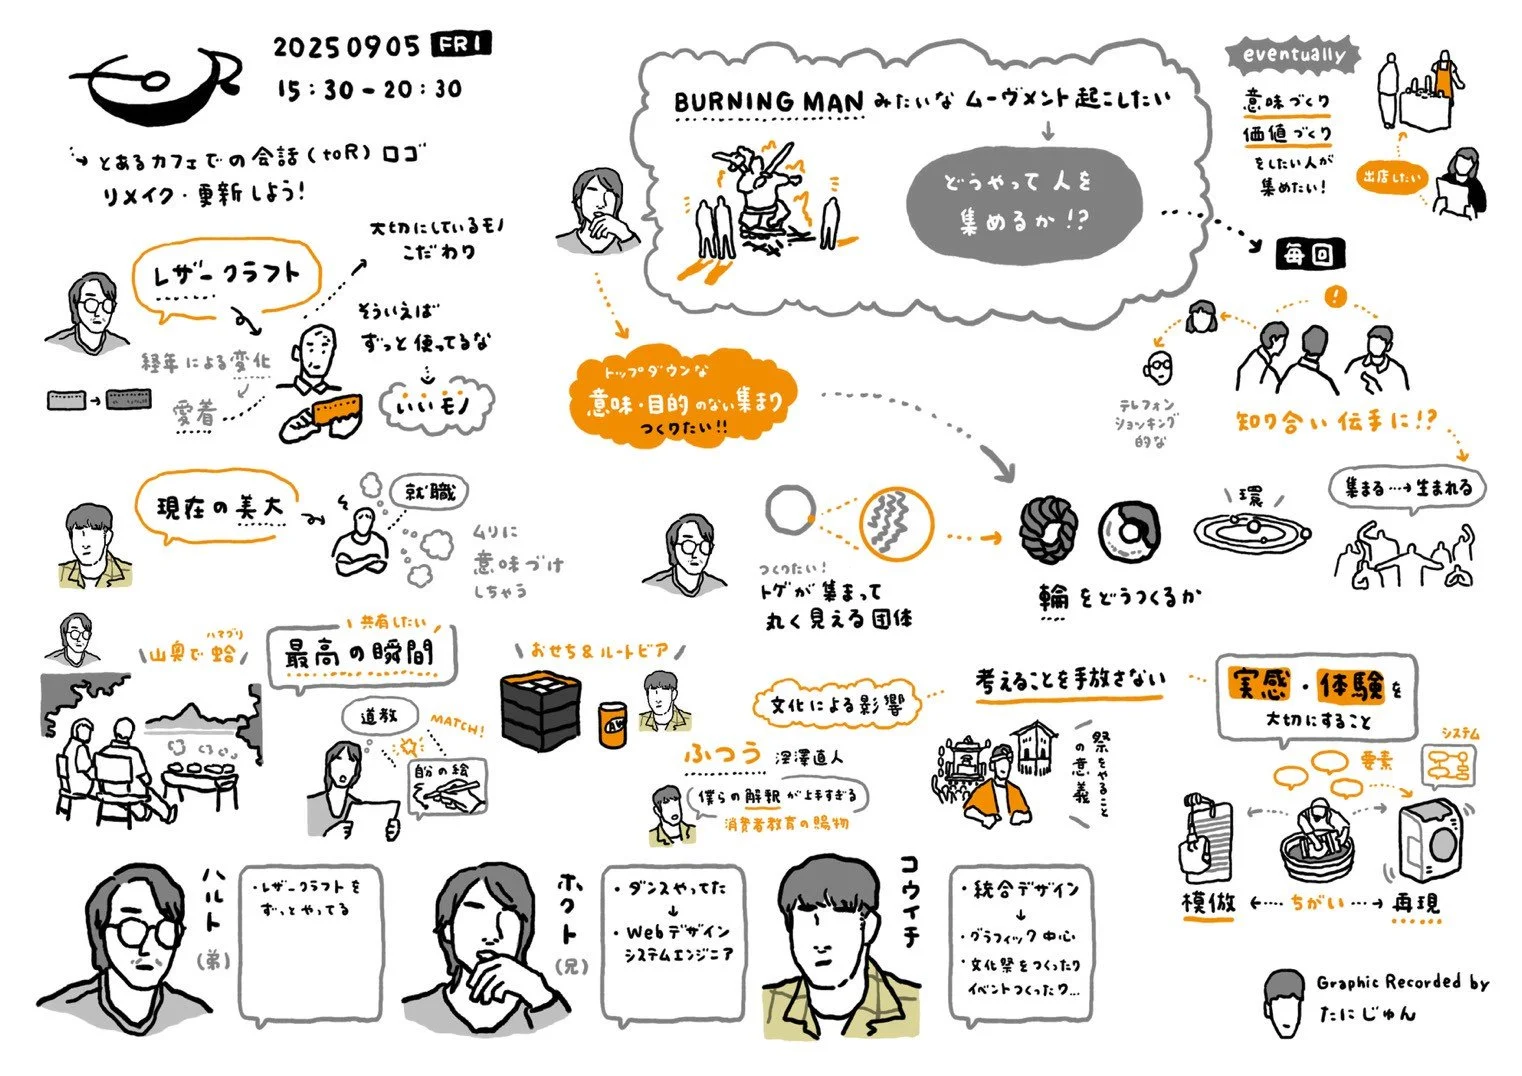 20250905 FRI
15:30-20:30
とあるカフェでの会話(toR)ロゴ
リメイク・更新しよう!
レザークラフト
大切にしているモノ
こだわり
そういえば
ずっと使ってるな
いいモノ
経年による変化
愛着
BURNING MAN みたいな ムーヴメント起こしたい
どうやって人を
集めるか!?
eventually
意味づくり
価値づくり
をしたい人が
集めたい!
出店したい
毎回
!
テレフォン
ショッキング
的な
知り合い伝手に!?
集まる…→生まれる
トップダウンな
意味・目的のない集まり
つくりたい!!
現在の美大
就職
ムリに
意味づけ
しちゃう
つくりたい!
トゲが集まって
丸く見える団体
環
輪をどうつくるか
ハマグリ
山奥で蛤
共有したい
最高の瞬間
道教
MATCH!
自分の絵
おせち&ルートビア
A&W
文化による影響
考えることを手放さない
ふつう 深澤直人
僕らの解釈が上手すぎる
消費者教育の賜物
祭をやること
の意義
実感・体験を
大切にすること
システム
要素
模倣 ←…ちがい…→ 再現
ハルト
(弟)
・レザークラフトを
ずっとやってる
ホクト
(兄)
・ダンスやってた
↓
・Webデザイン
システムエンジニア
コウイチ
・統合デザイン
↓
・グラフィック中心
・文化祭をつくったり
イベントつくったり…
Graphic Recorded by
たにじゅん